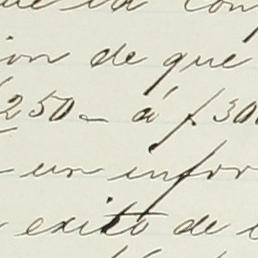 ue la con
ion de que
250 - á f. 300
un infor
exito de